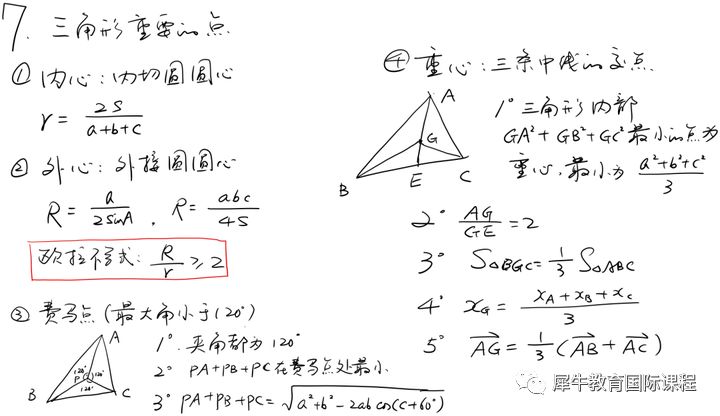 7. 三角形重要的点
① 内心：内切圆圆心
r = 2S/(a+b+c)
② 外心：外接圆圆心
R = a/(2sinA) , R = abc/(4S)
欧拉不等式: R/r ≥ 2
③ 费马点 (最大角小于120°)
A
120° P 120°
120°
B C
1° 夹角都为120°
2° PA+PB+PC在费马点处最小
3° PA+PB+PC = √(a²+b²-2ab cos(C+60°))
④ 重心：三条中线的交点
A
G
B E C
1° 三角形内部
GA²+GB²+GC²最小的点为
重心，最小为 (a²+b²+c²)/3
2° AG/GE = 2
3° S△BGC = 1/3 S△ABC
4° x_G = (x_A + x_B + x_C)/3
5° →AG = 1/3 (→AB + →AC)
犀牛教育国际课程